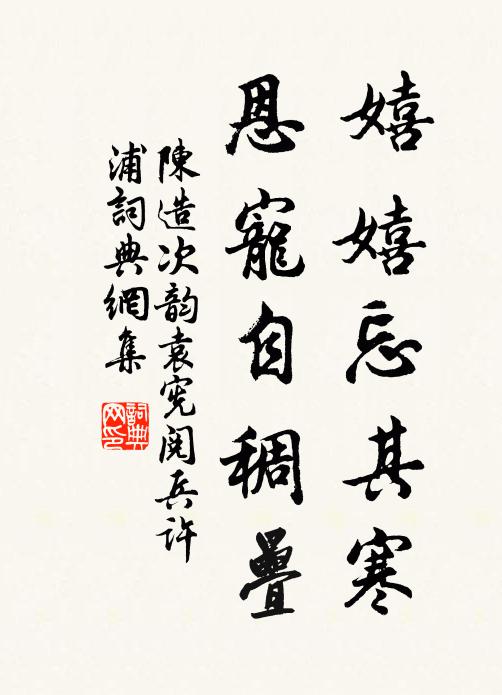 嬉嬉忘其寒
恩寵自稠疊
陳造次韵袁宪阅兵许
浦詞典網集
詞典网印